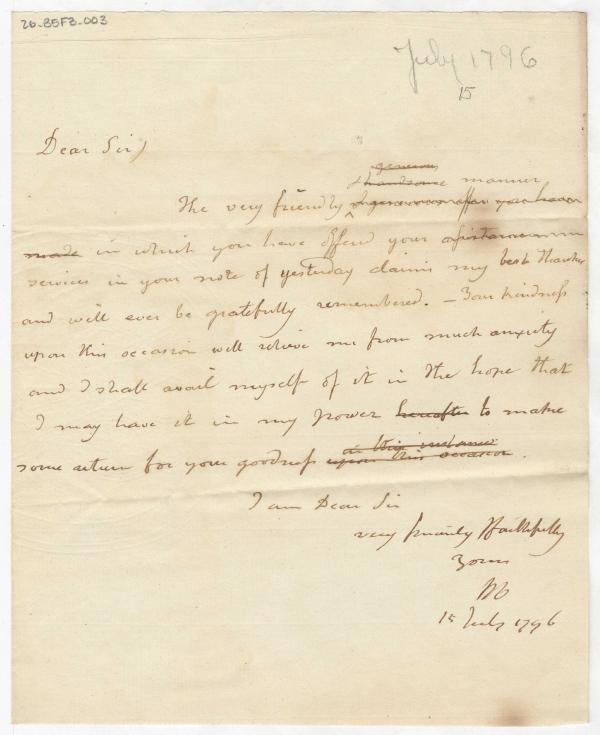 26-85F3-003
July 1796
15
Dear Sir,
generous
& handsome manner
The very friendly & generous offer you have
made in which you have offerd your assistance
services in your note of yesterday claims my best thanks
and will ever be gratefully remembered. – Your kindness
upon this occasion will relieve me from much anxiety
and I shall avail myself of it in the hope that
I may have it in my power hereafter to make
in this instance
some return for your goodness upon this occasion.
I am Dear Sir
very sincerely & faithfully
Yours
15 July 1796